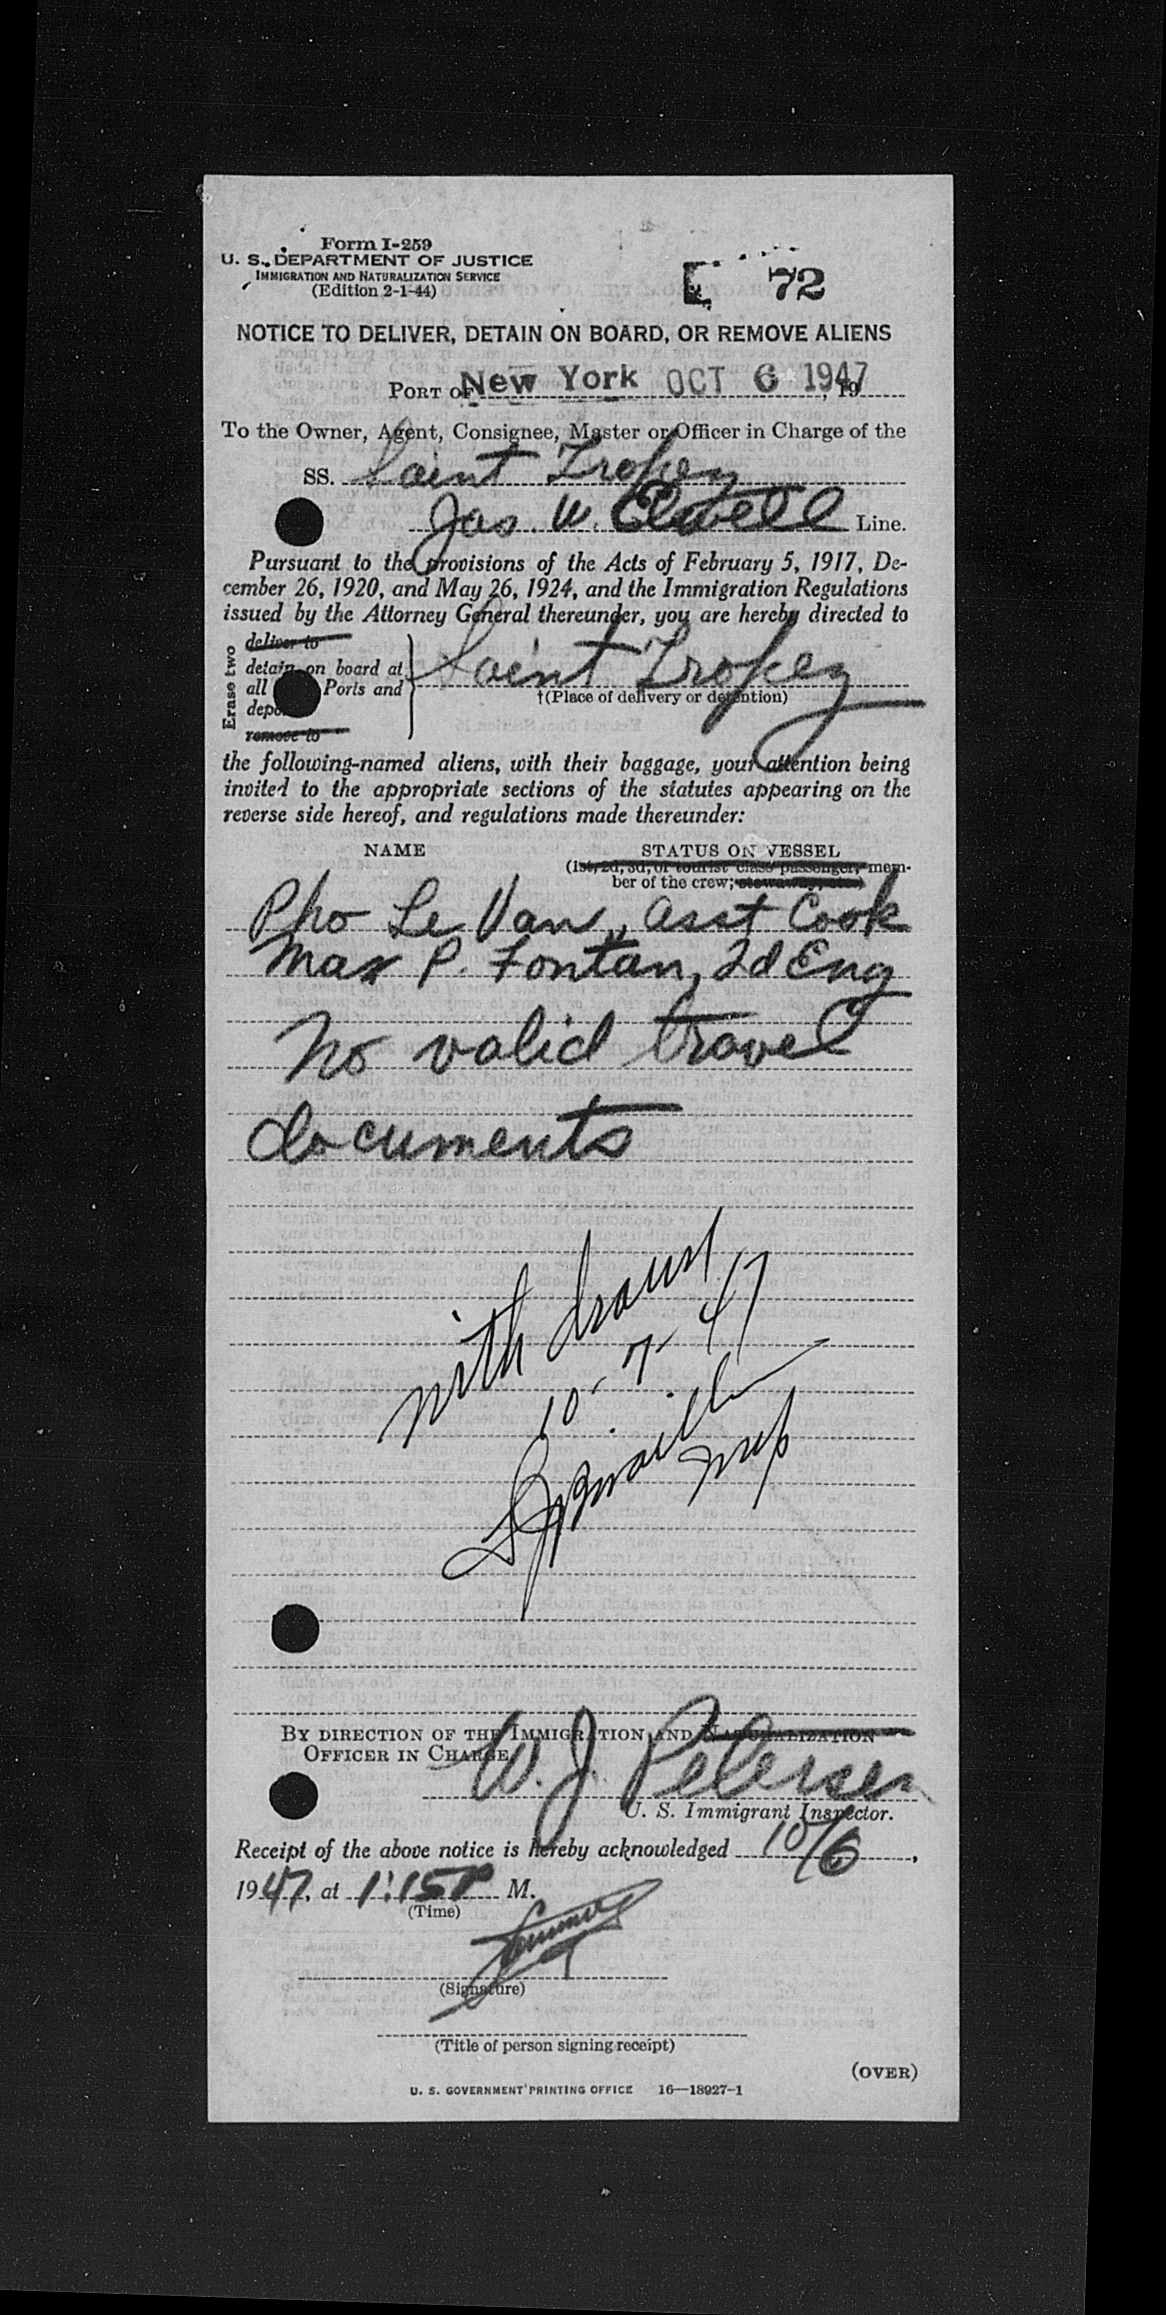 Form I-259
U. S. DEPARTMENT OF JUSTICE
IMMIGRATION AND NATURALIZATION SERVICE
(Edition 2-1-44)
E 72
NOTICE TO DELIVER, DETAIN ON BOARD, OR REMOVE ALIENS
PORT OF New York OCT 6 1947, 19
To the Owner, Agent, Consignee, Master or Officer in Charge of the
SS. Saint Tropez
Jas. W. Elwell Line.
Pursuant to the provisions of the Acts of February 5, 1917, De-
cember 26, 1920, and May 26, 1924, and the Immigration Regulations
issued by the Attorney General thereunder, you are hereby directed to
Erase two
deliver to
detain on board at
all Ports and
remove to
Saint Tropez
†(Place of delivery or detention)
the following-named aliens, with their baggage, your attention being
invited to the appropriate sections of the statutes appearing on the
reverse side hereof, and regulations made thereunder:
NAME STATUS ON VESSEL
(1st, 2d, 3d, or tourist class passenger, mem-
ber of the crew; stowaway, etc.)
Pho Le Van, asst Cook
Max P. Fontan, 2d Eng
No valid travel
documents
with drawn
10-7-47
BY DIRECTION OF THE IMMIGRATION AND NATURALIZATION
OFFICER IN CHARGE
W. J. Petersen
U. S. Immigrant Inspector.
Receipt of the above notice is hereby acknowledged 10/6,
1947, at 1:15 P M.
(Time)
(Signature)
(Title of person signing receipt)
(OVER)
U. S. GOVERNMENT PRINTING OFFICE 16—18927-1